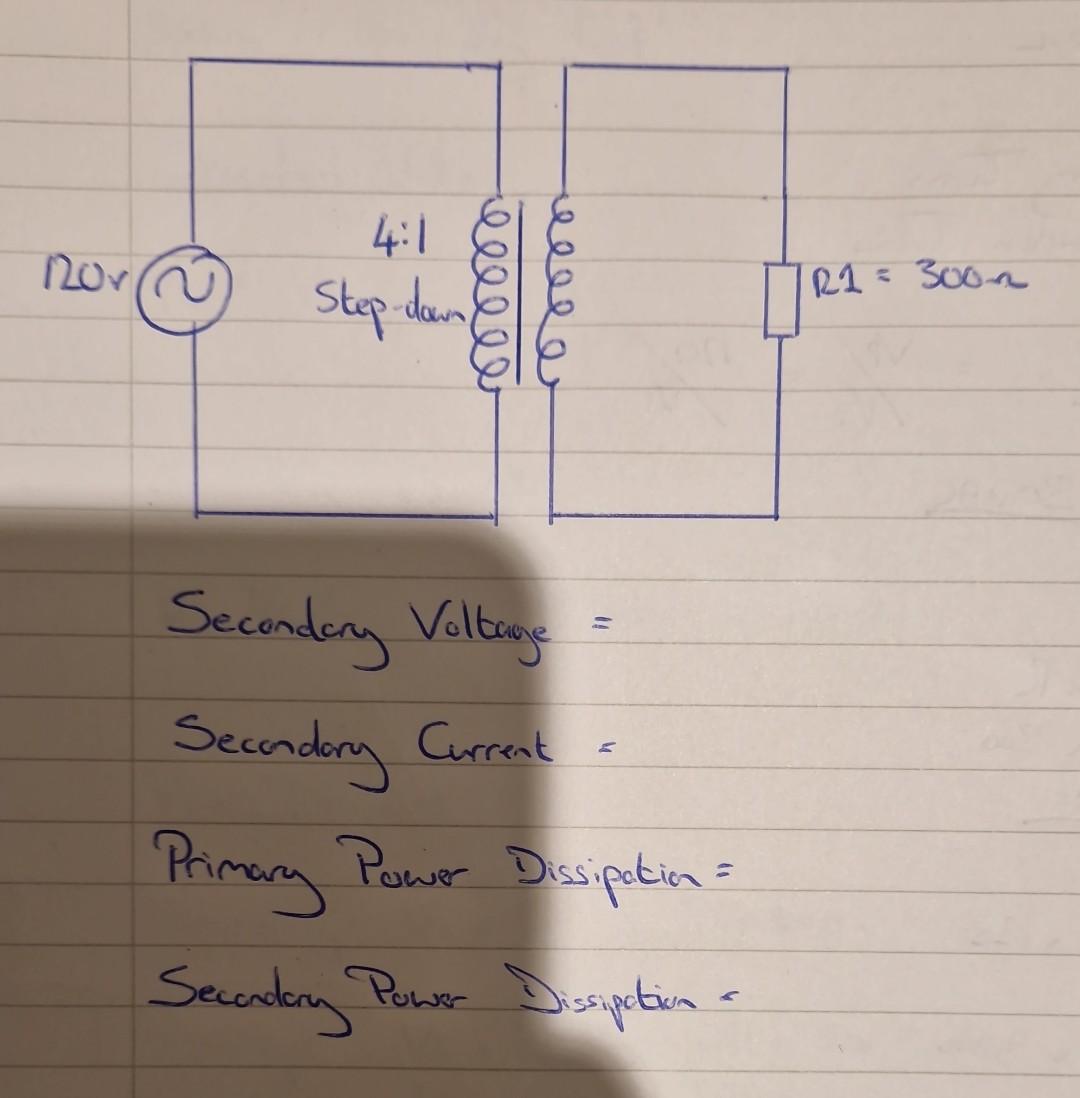 4:1
120v
Step-down
R1 = 300Ω
Secondary Voltage =
Secondary Current =
Primary Power Dissipation =
Secondary Power Dissipation =